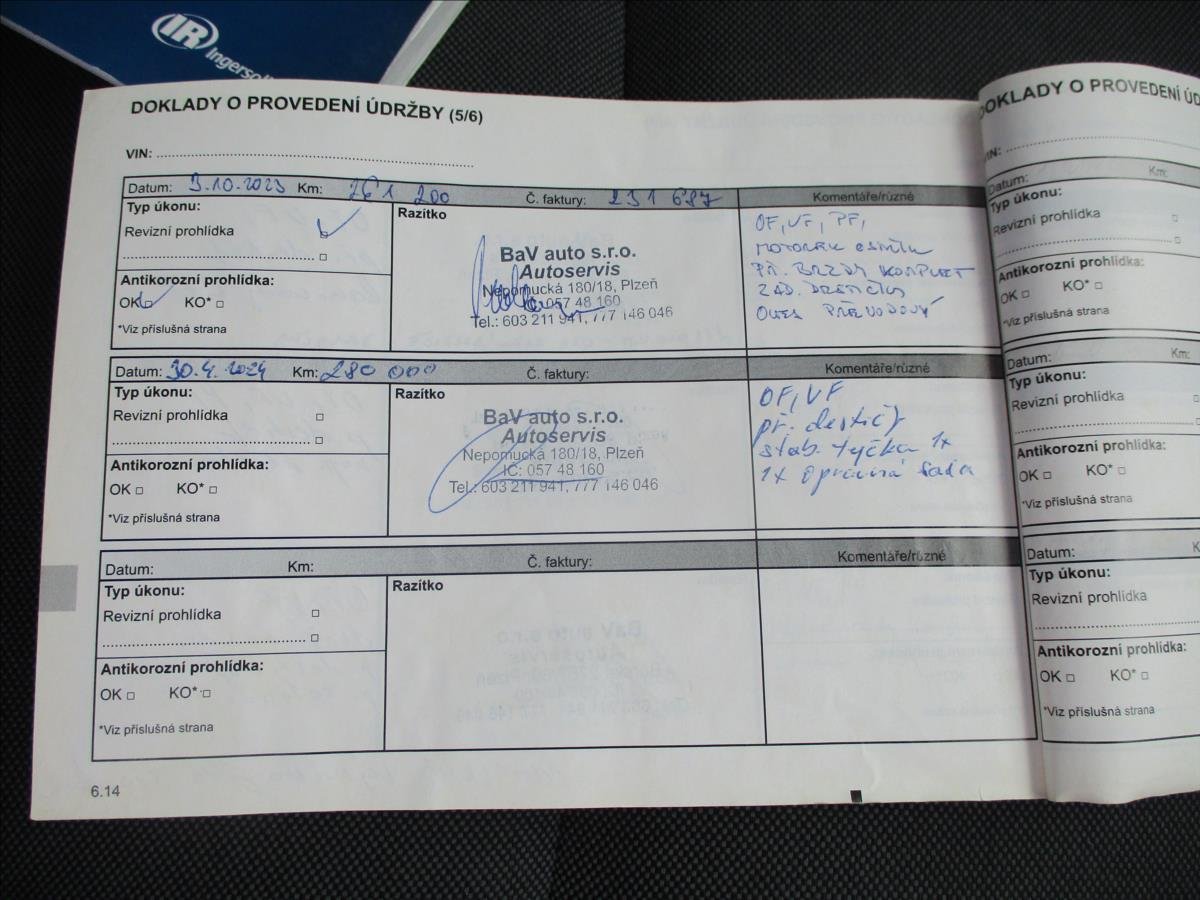 IR
Ingersoll
DOKLADY O PROVEDENÍ ÚDRŽBY (5/6)
VIN:
Datum: 3.10.2023 Km: 261 200 Č. faktury: 231 687 Komentáře/různé
Typ úkonu:
Revizní prohlídka
Antikorozní prohlídka:
OK KO*
*Viz příslušná strana
Razítko
BaV auto s.r.o.
Autoservis
Nepomucká 180/18, Plzeň
IČ: 057 48 160
Tel.: 603 211 941, 777 146 046
OF, VF, PF,
MOTOROVÁ
PŘ. BRZDY KOMPLET
ZAD.
OLEJ PŘEVODOVÝ
Datum: 30.4.2024 Km: 280 000 Č. faktury: Komentáře/různé
Typ úkonu:
Revizní prohlídka
Antikorozní prohlídka:
OK KO*
*Viz příslušná strana
Razítko
BaV auto s.r.o.
Autoservis
Nepomucká 180/18, Plzeň
IČ: 057 48 160
Tel.: 603 211 941, 777 146 046
OF, VF
př. destičky
stab. tyčka 1x
1x opravná sada
Datum: Km: Č. faktury: Komentáře/různé
Typ úkonu:
Revizní prohlídka
Antikorozní prohlídka:
OK KO*
*Viz příslušná strana
Razítko
6.14
DOKLADY O PROVEDENÍ
VIN:
Datum: Km:
Typ úkonu:
Revizní prohlídka
Antikorozní prohlídka:
OK KO*
*Viz příslušná strana
Datum: Km:
Typ úkonu:
Revizní prohlídka
Antikorozní prohlídka:
OK KO*
*Viz příslušná strana
Datum:
Typ úkonu:
Revizní prohlídka
Antikorozní prohlídka:
OK KO*
*Viz příslušná strana